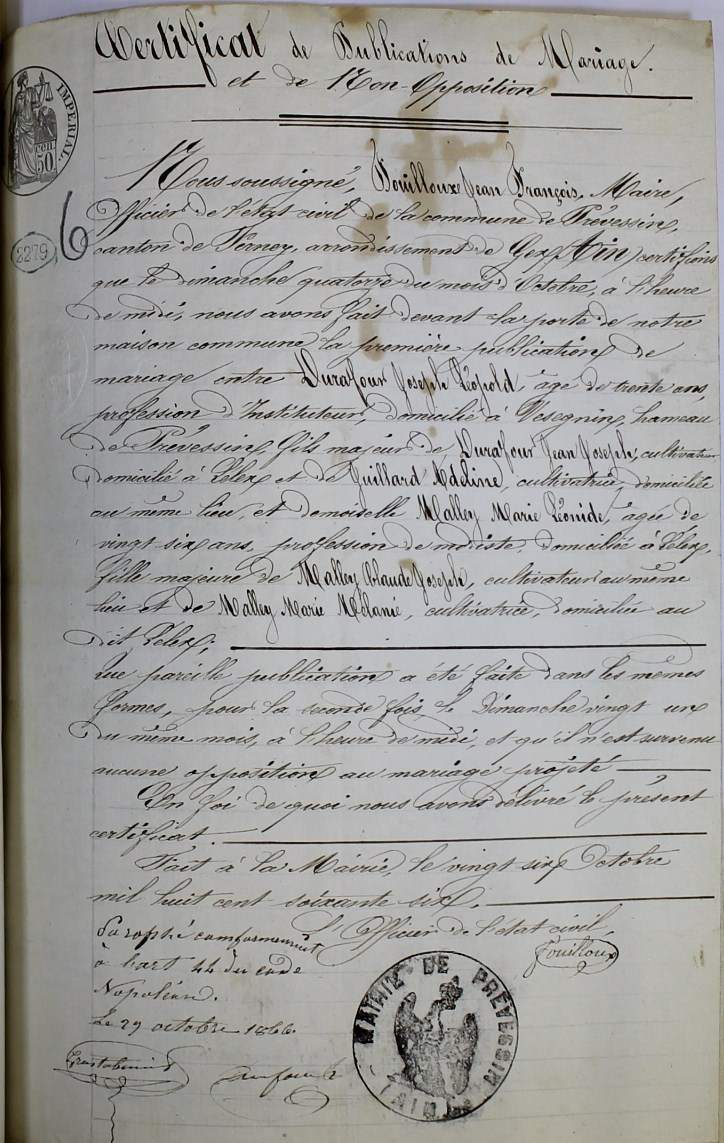 Certificat de Publications de Mariage.
et de Non-Opposition
IMPERIAL.
50
2279
6
Nous soussigné, Fouilloux Jean François, Maire,
Officier de l'état civil de la commune de Prévessin,
canton de Ferney, arrondissement de Gex (Ain) certifions
que le dimanche quatorze du mois d'Octobre, à l'heure
de midi, nous avons fait devant la porte de notre
maison commune la première publication de
mariage entre Durafour Joseph Léopold, âgé de trente ans,
profession d'Instituteur, domicilié à Vesegnin, hameau
de Prévessin, fils majeur de Durafour Jean Joseph, cultivateur
domicilié à Lelex et de Guillard Adeline, cultivatrice, domiciliée
au même lieu, et demoiselle Malley Marie Léonide, âgée de
vingt-six ans, profession de modiste, domiciliée à Lelex,
fille majeure de Malley Claude Joseph, cultivateur au même
lieu et de Malley Marie Mélanie, cultivatrice, domiciliée au
dit Lelex;
Que pareille publication a été faite dans les mêmes
formes, pour la seconde fois, le Dimanche vingt un
du même mois, à l'heure de midi, et qu'il n'est survenu
aucune opposition au mariage projeté
En foi de quoi nous avons délivré le présent
certificat.
Fait à la Mairie, le vingt-six Octobre
mil huit cent soixante six.
L'Officier de l'état civil,
Fouilloux
Paraphé conformément
à l'art 44 du code
Napoléon.
Le 29 octobre 1866
MAIRIE DE PREVESSIN
(AIN)